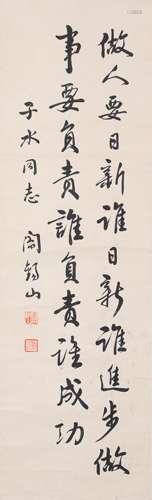 做人要日新誰日新誰進步做
事要負責誰負責誰成功
子水同志
閻錫山